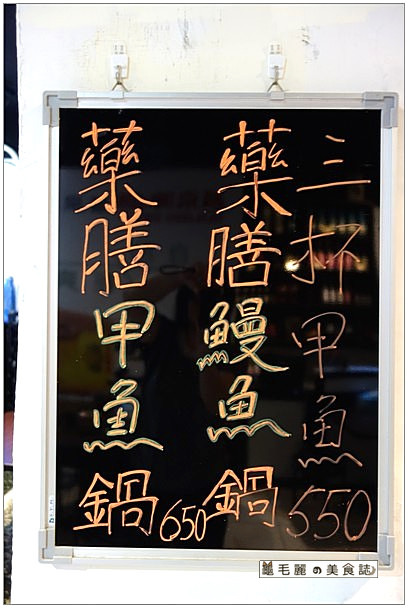 三杯甲魚 550
藥膳鰻魚鍋
藥膳甲魚鍋 650
毛麗の美食誌